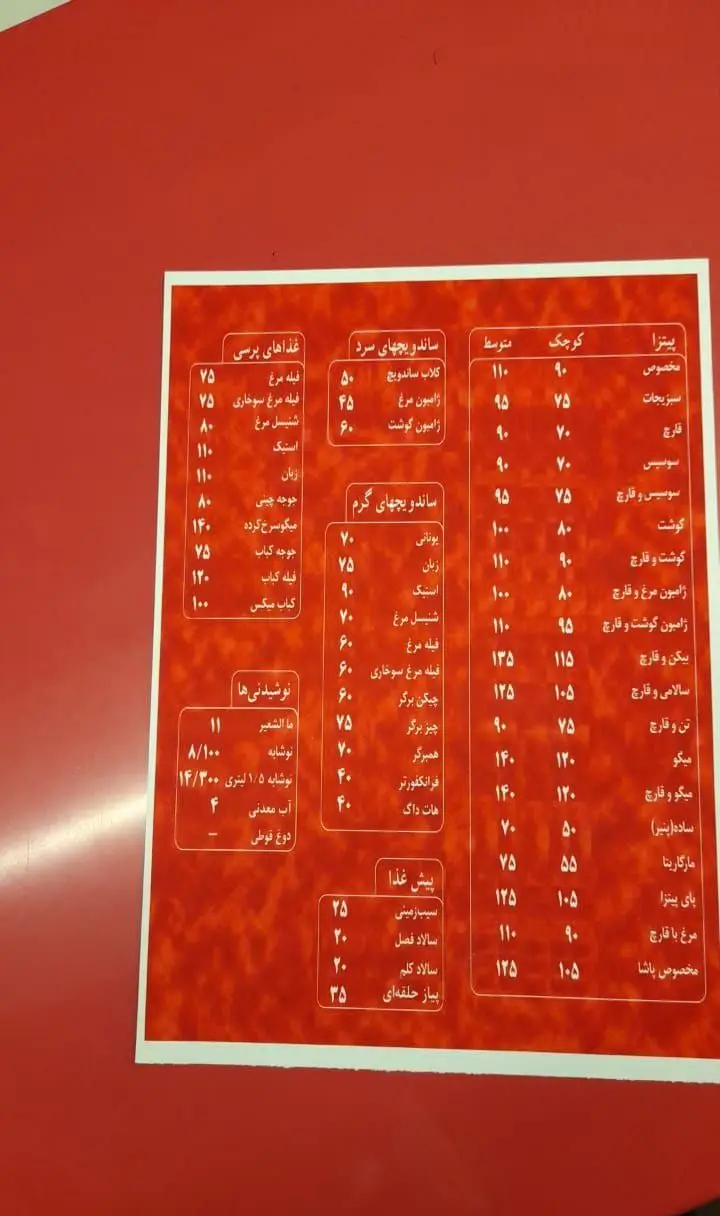 پیتزا کوچک متوسط
مخصوص ۹۰ ۱۱۰
سبزیجات ۷۵ ۹۵
قارچ ۷۰ ۹۰
سوسیس ۷۰ ۹۰
سوسیس و قارچ ۷۵ ۹۵
گوشت ۸۰ ۱۰۰
گوشت و قارچ ۹۰ ۱۱۰
ژامبون مرغ و قارچ ۸۰ ۱۰۰
ژامبون گوشت و قارچ ۹۵ ۱۱۰
بیکن و قارچ ۱۱۵ ۱۳۵
سالامی و قارچ ۱۰۵ ۱۲۵
تن و قارچ ۷۵ ۹۰
میگو ۱۲۰ ۱۴۰
میگو و قارچ ۱۲۰ ۱۴۰
ساده(پنیر) ۵۰ ۷۰
مارگاریتا ۵۵ ۷۵
پای پیتزا ۱۰۵ ۱۲۵
مرغ با قارچ ۹۰ ۱۱۰
مخصوص پاشا ۱۰۵ ۱۲۵
ساندویچهای سرد
کلاب ساندویچ ۵۰
ژامبون مرغ ۴۵
ژامبون گوشت ۶۰
ساندویچهای گرم
یونانی ۷۰
زبان ۷۵
استیک ۹۰
شنیسل مرغ ۷۰
فیله مرغ ۶۰
فیله مرغ سوخاری ۶۰
چیکن برگر ۶۰
چیز برگر ۷۵
همبرگر ۷۰
فرانکفورتر ۴۰
هات داگ ۴۰
پیش غذا
سیب‌زمینی ۲۵
سالاد فصل ۲۰
سالاد کلم ۲۰
پیاز حلقه‌ای ۳۵
غذاهای پرسی
فیله مرغ ۷۵
فیله مرغ سوخاری ۷۵
شنیسل مرغ ۸۰
استیک ۱۱۰
زبان ۱۱۰
جوجه چینی ۸۰
میگو سرخ‌کرده ۱۴۰
جوجه کباب ۷۵
فیله کباب ۱۲۰
کباب میکس ۱۰۰
نوشیدنی‌ها
ما الشعیر ۱۱
نوشابه ۸/۱۰۰
نوشابه ۱/۵ لیتری ۱۴/۳۰۰
آب معدنی ۴
دوغ قوطی –